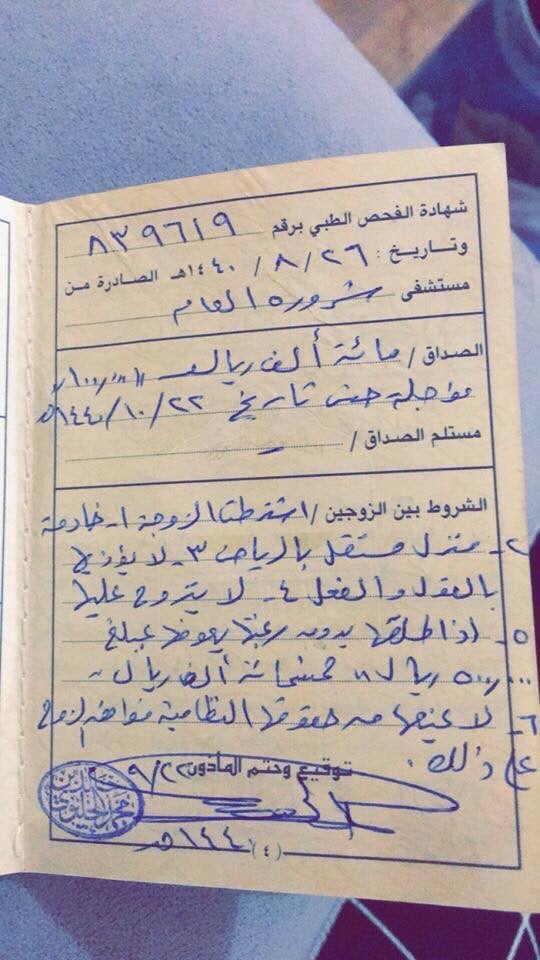 شهادة الفحص الطبي برقم ٨٣٩٦١٩
وتاريخ : ٢٦ / ٨ / ١٤٤٠هـ الصادرة من
مستشفى شروره العام
الصداق / مائة ألف ريال ١٠٠,٠٠٠
مؤجلة حتى تاريخ ٢٢ / ١٠ / ١٤٤٠هـ
مستلم الصداق / ـ
الشروط بين الزوجين / اشترطت الزوجة ١ـ خادمة
٢ـ منزل مستقل بالرياض ٣ـ لا يؤذيها
بالقول والفعل ٤ـ لا يتزوج عليها
٥ـ اذا طلقها بدون رغبتها يعوضها بمبلغ
٥٠٠,٠٠٠ ريال خمسمائة ألف ريال
٦ـ لا يمنعها من حقوقها النظامية فوافق الزوج
على ذلك .
توقيع وختم المأذون ٩/٢٢
١٤٤٠هـ
(٤)